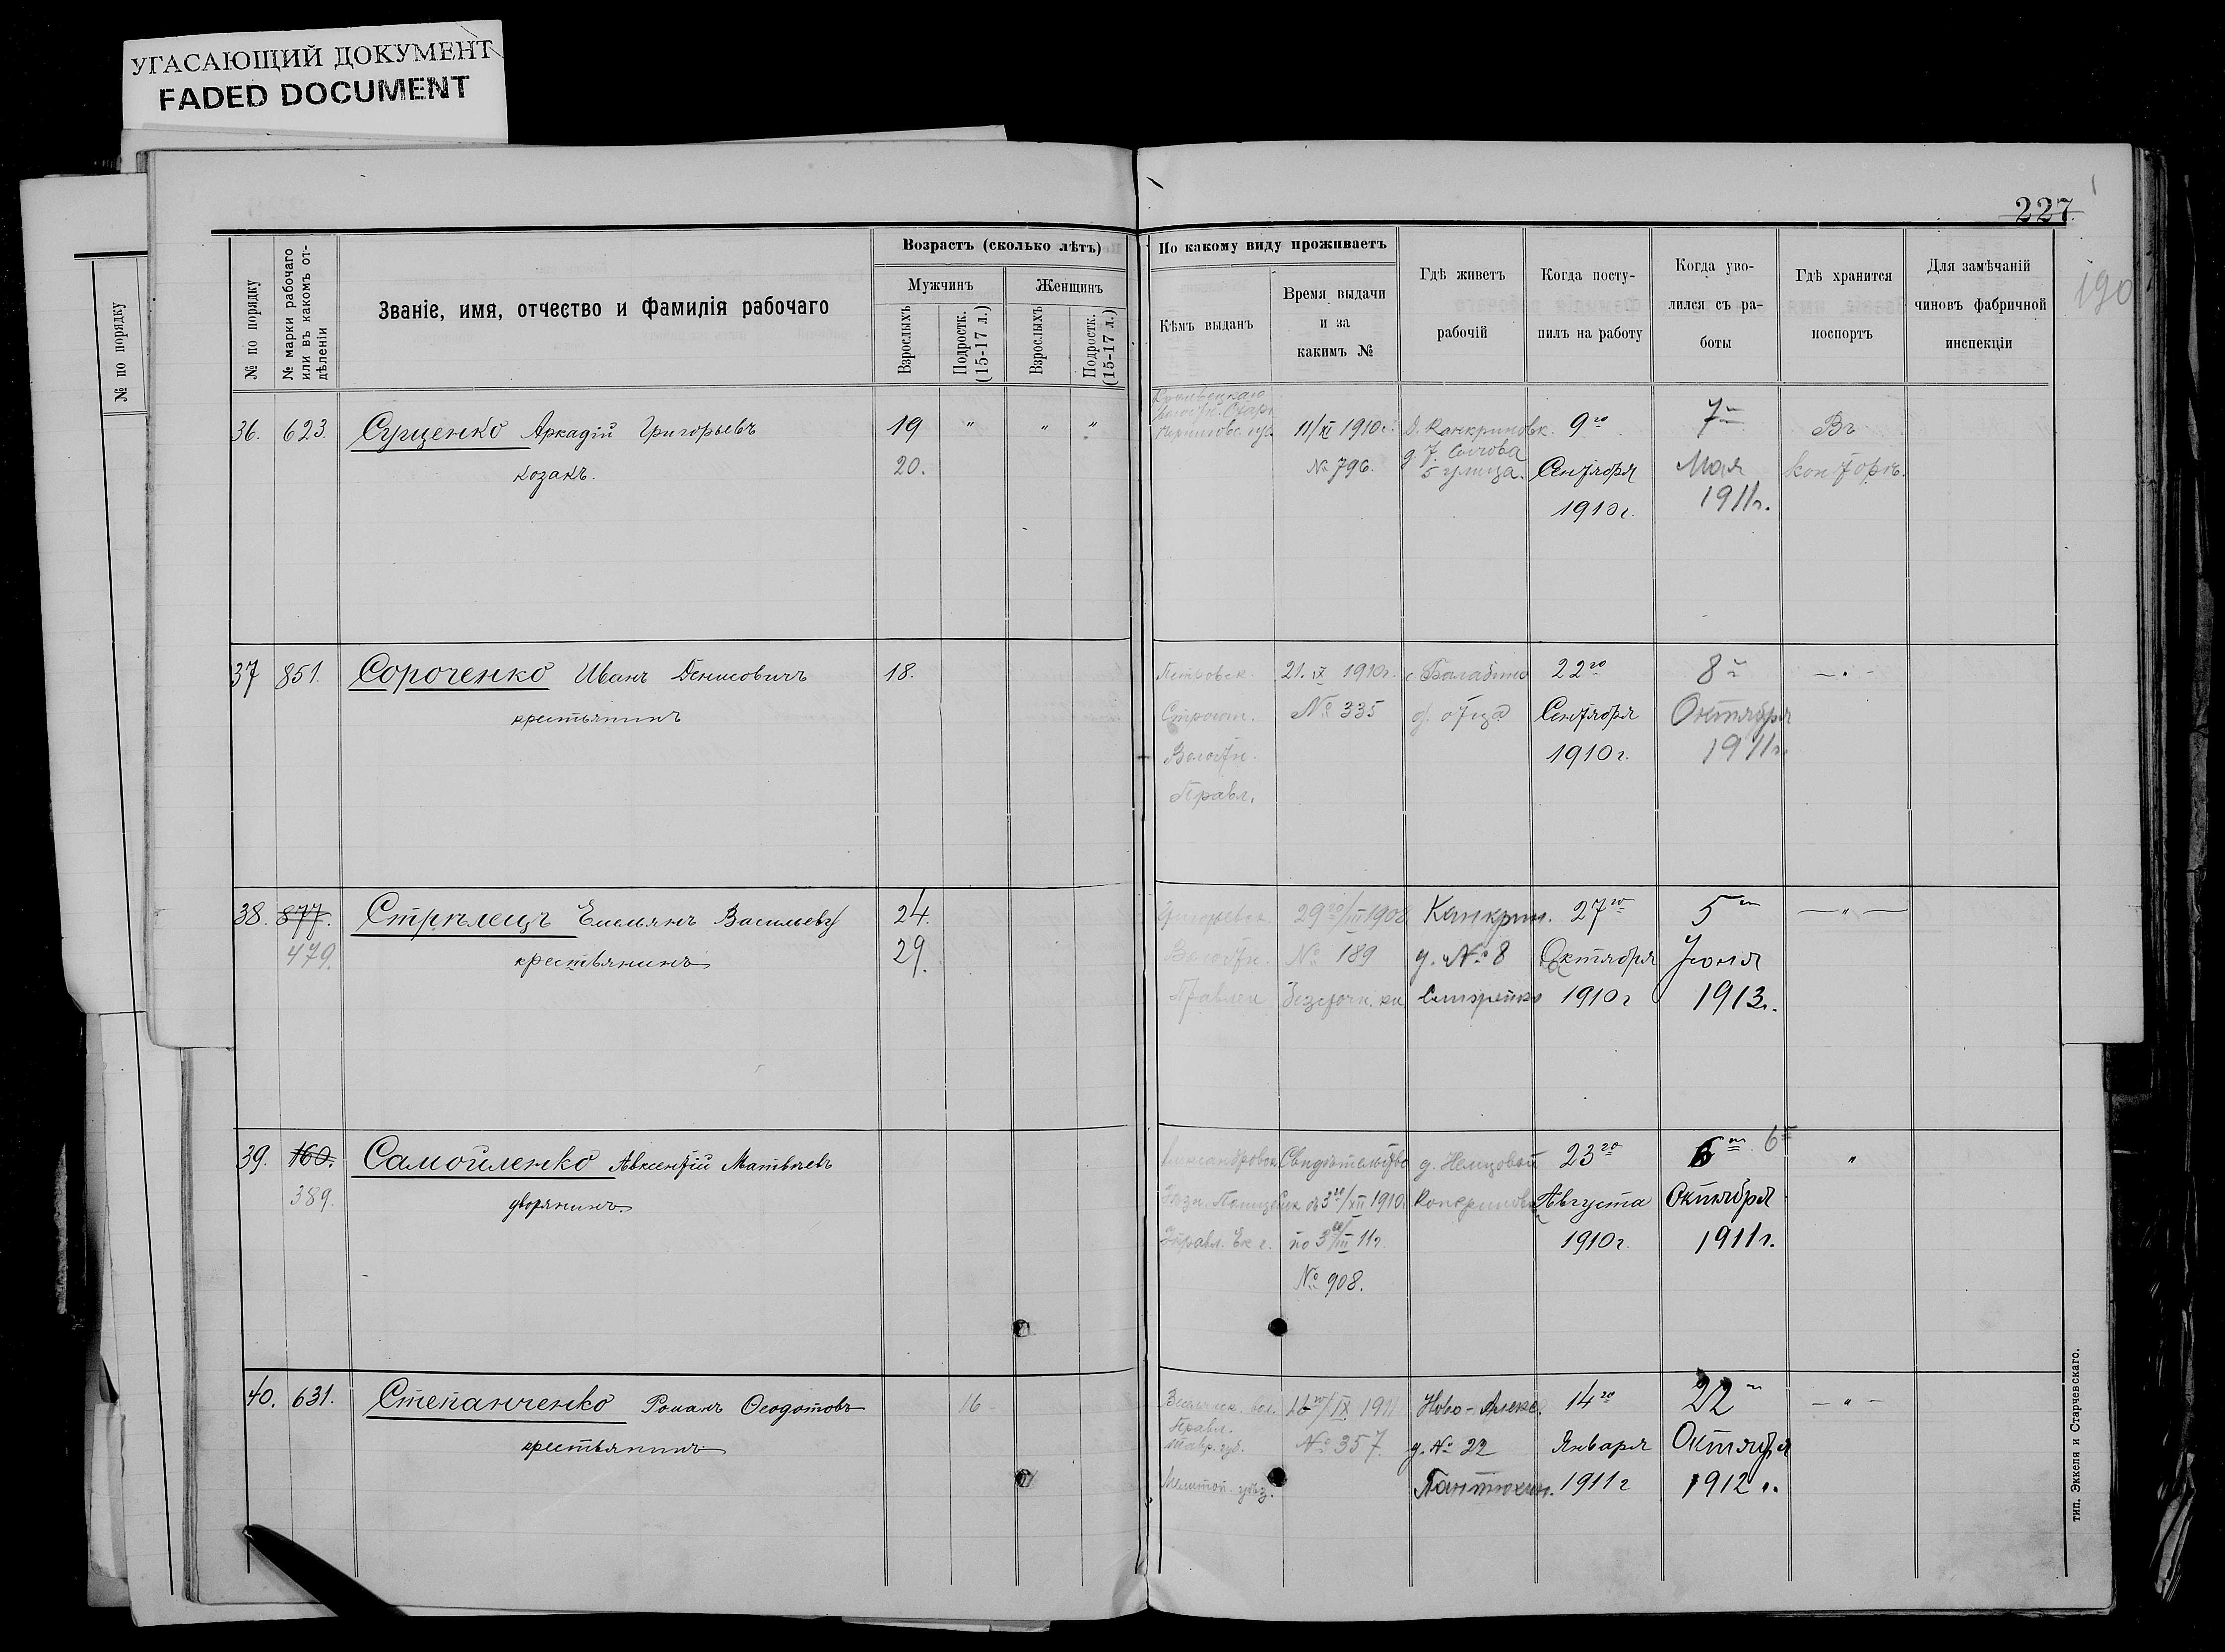 УГАСАЮЩИЙ ДОКУМЕНТ
FADED DOCUMENT
227.
190
№ по порядку
№ по порядку
№ марки рабочаго или въ какомъ от-дѣленіи
Званіе, имя, отчество и Фамилія рабочаго
Возрастъ (сколько лѣтъ)
Мужчинъ
Женщинъ
Взрослыхъ
Подростк. (15-17 л.)
Взрослыхъ
Подростк. (15-17 л.)
По какому виду проживаетъ
Кѣмъ выданъ
Время выдачи
и за
какимъ №
Гдѣ живетъ
рабочій
Когда посту-
пилъ на работу
Когда уво-
лился съ ра-
боты
Гдѣ хранится
поспортъ
Для замѣчаній
чиновъ фабричной
инспекціи
36. 623. Сущенко Аркадій Григорьевъ 19 " " "
козакъ. 20.
11/XI 1910г.
№ 796.
Д. Канкриновк.
5 улица.
9го
Сентября
1910г.
7го
Мая
1911г.
Въ
конторѣ.
37 851. Сороченко Иванъ Денисовичъ 18.
крестьянинъ
Петровск.
Волостн.
Правл.
21. IX 1910г.
№ 335
с Балабино
д. отца
22го
Сентября
1910г.
8го
Октября
1911г.
— . —
38. 877. Стрѣлецъ Емельянъ Васильевъ 24.
479. крестьянинъ 29.
Волостн.
Правлен
29го/III 1908
№ 189
Канкрин.
д. № 8
27го
Октября
1910г
5го
Іюня
1913г.
— " —
39. 160. Самойленко Авксентій Матвѣевъ
389. дворянинъ
Александровск
Уѣзн. Полицейск
Управл. Ек г.
Свидѣтельство
съ 3го/XII 1910г
по 3го/III 11г
№ 908.
23го
Августа
1910г.
6го 6го
Октября
1911г.
"
40. 631. Степанченко Романъ Ѳеодотовъ 16
крестьянинъ
Правл.
Тавр. губ.
Мелитоп. уѣз.
16го/IX 191
№ 357.
Ново-Алекс.
д. № 22
14го
Января
1911г
22го
Октября
1912г.
— " —
тип. Эккеля и Старчевскаго.